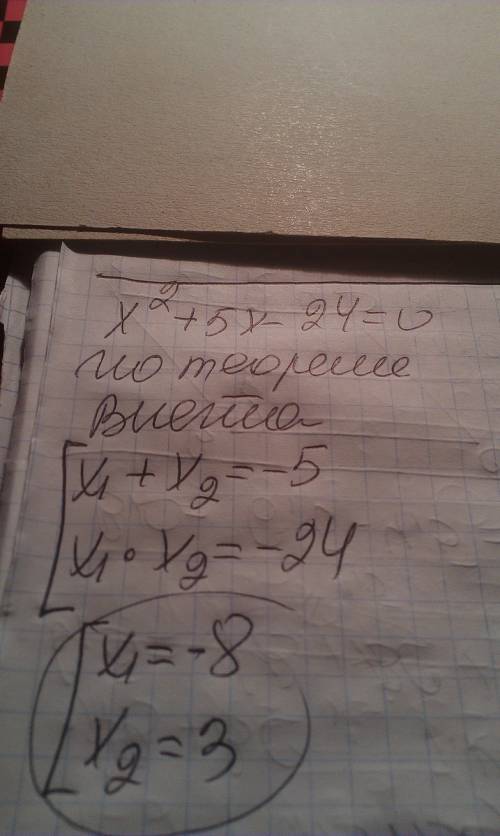 x²+5x-24=0
по теореме
Виетта
x₁+x₂=-5
x₁·x₂=-24
x₁=-8
x₂=3